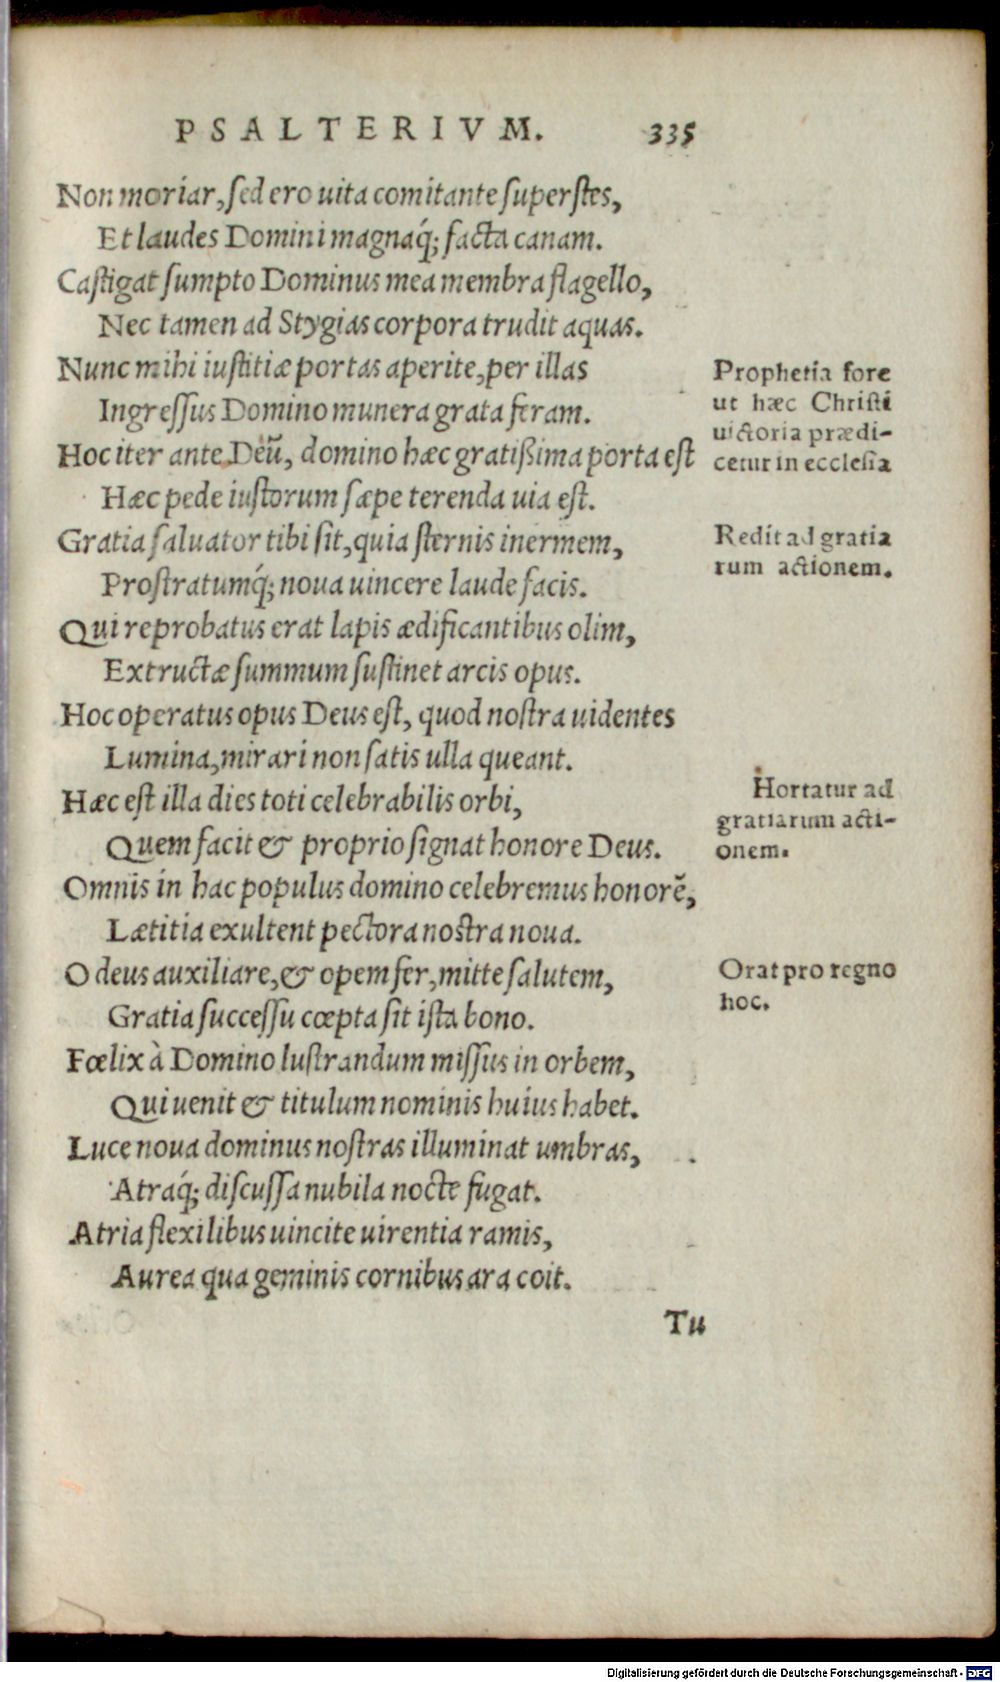 PSALTERIVM. 335
Non moriar, sed ero uita comitante superstes,
Et laudes Domini magnaq́; facta canam.
Castigat sumpto Dominus mea membra flagello,
Nec tamen ad Stygias corpora trudit aquas.
Nunc mihi iustitiæ portas aperite, per illas
Ingressus Domino munera grata feram.
Hoc iter ante Deū, domino hæc gratißima porta est
Hæc pede iustorum sæpe terenda uia est.
Gratia saluator tibi sit, quia sternis inermem,
Prostratumq́; noua uincere laude facis.
Qui reprobatus erat lapis ædificantibus olim,
Extructæ summum sustinet arcis opus.
Hoc operatus opus Deus est, quod nostra uidentes
Lumina, mirari non satis ulla queant.
Hæc est illa dies toti celebrabilis orbi,
Quem facit & proprio signat honore Deus.
Omnis in hac populus domino celebremus honorē,
Lætitia exultent pectora nostra noua.
O deus auxiliare, & opem fer, mitte salutem,
Gratia successu cœpta sit ista bono.
Fœlix à Domino lustrandum missus in orbem,
Qui uenit & titulum nominis huius habet.
Luce noua dominus nostras illuminat umbras,
Atraq́; discussa nubila nocte fugat.
Atria flexilibus uincite uirentia ramis,
Aurea qua geminis cornibus ara coit.
Tu
Prophetia fore
ut hæc Christi
uictoria prædi-
cetur in ecclesia
Redit ad gratia
rum actionem.
Hortatur ad
gratiarum acti-
onem.
Orat pro regno
hoc.
Digitalisierung gefördert durch die Deutsche Forschungsgemeinschaft - DFG